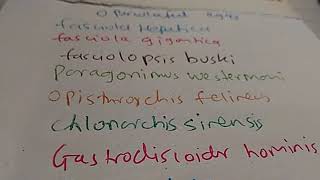 Operculated eggs
fasciola hepatica
fasciola gigantica
fasciolopsis buski
Paragonimus westermani
Opisthorchis felineus
Chlonorchis sirensis
Gastrodiscioidr hominis